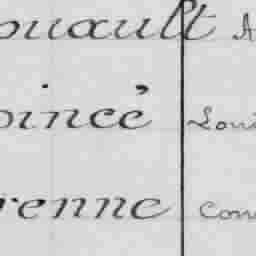 ouault A
oincé Loui
renne Con